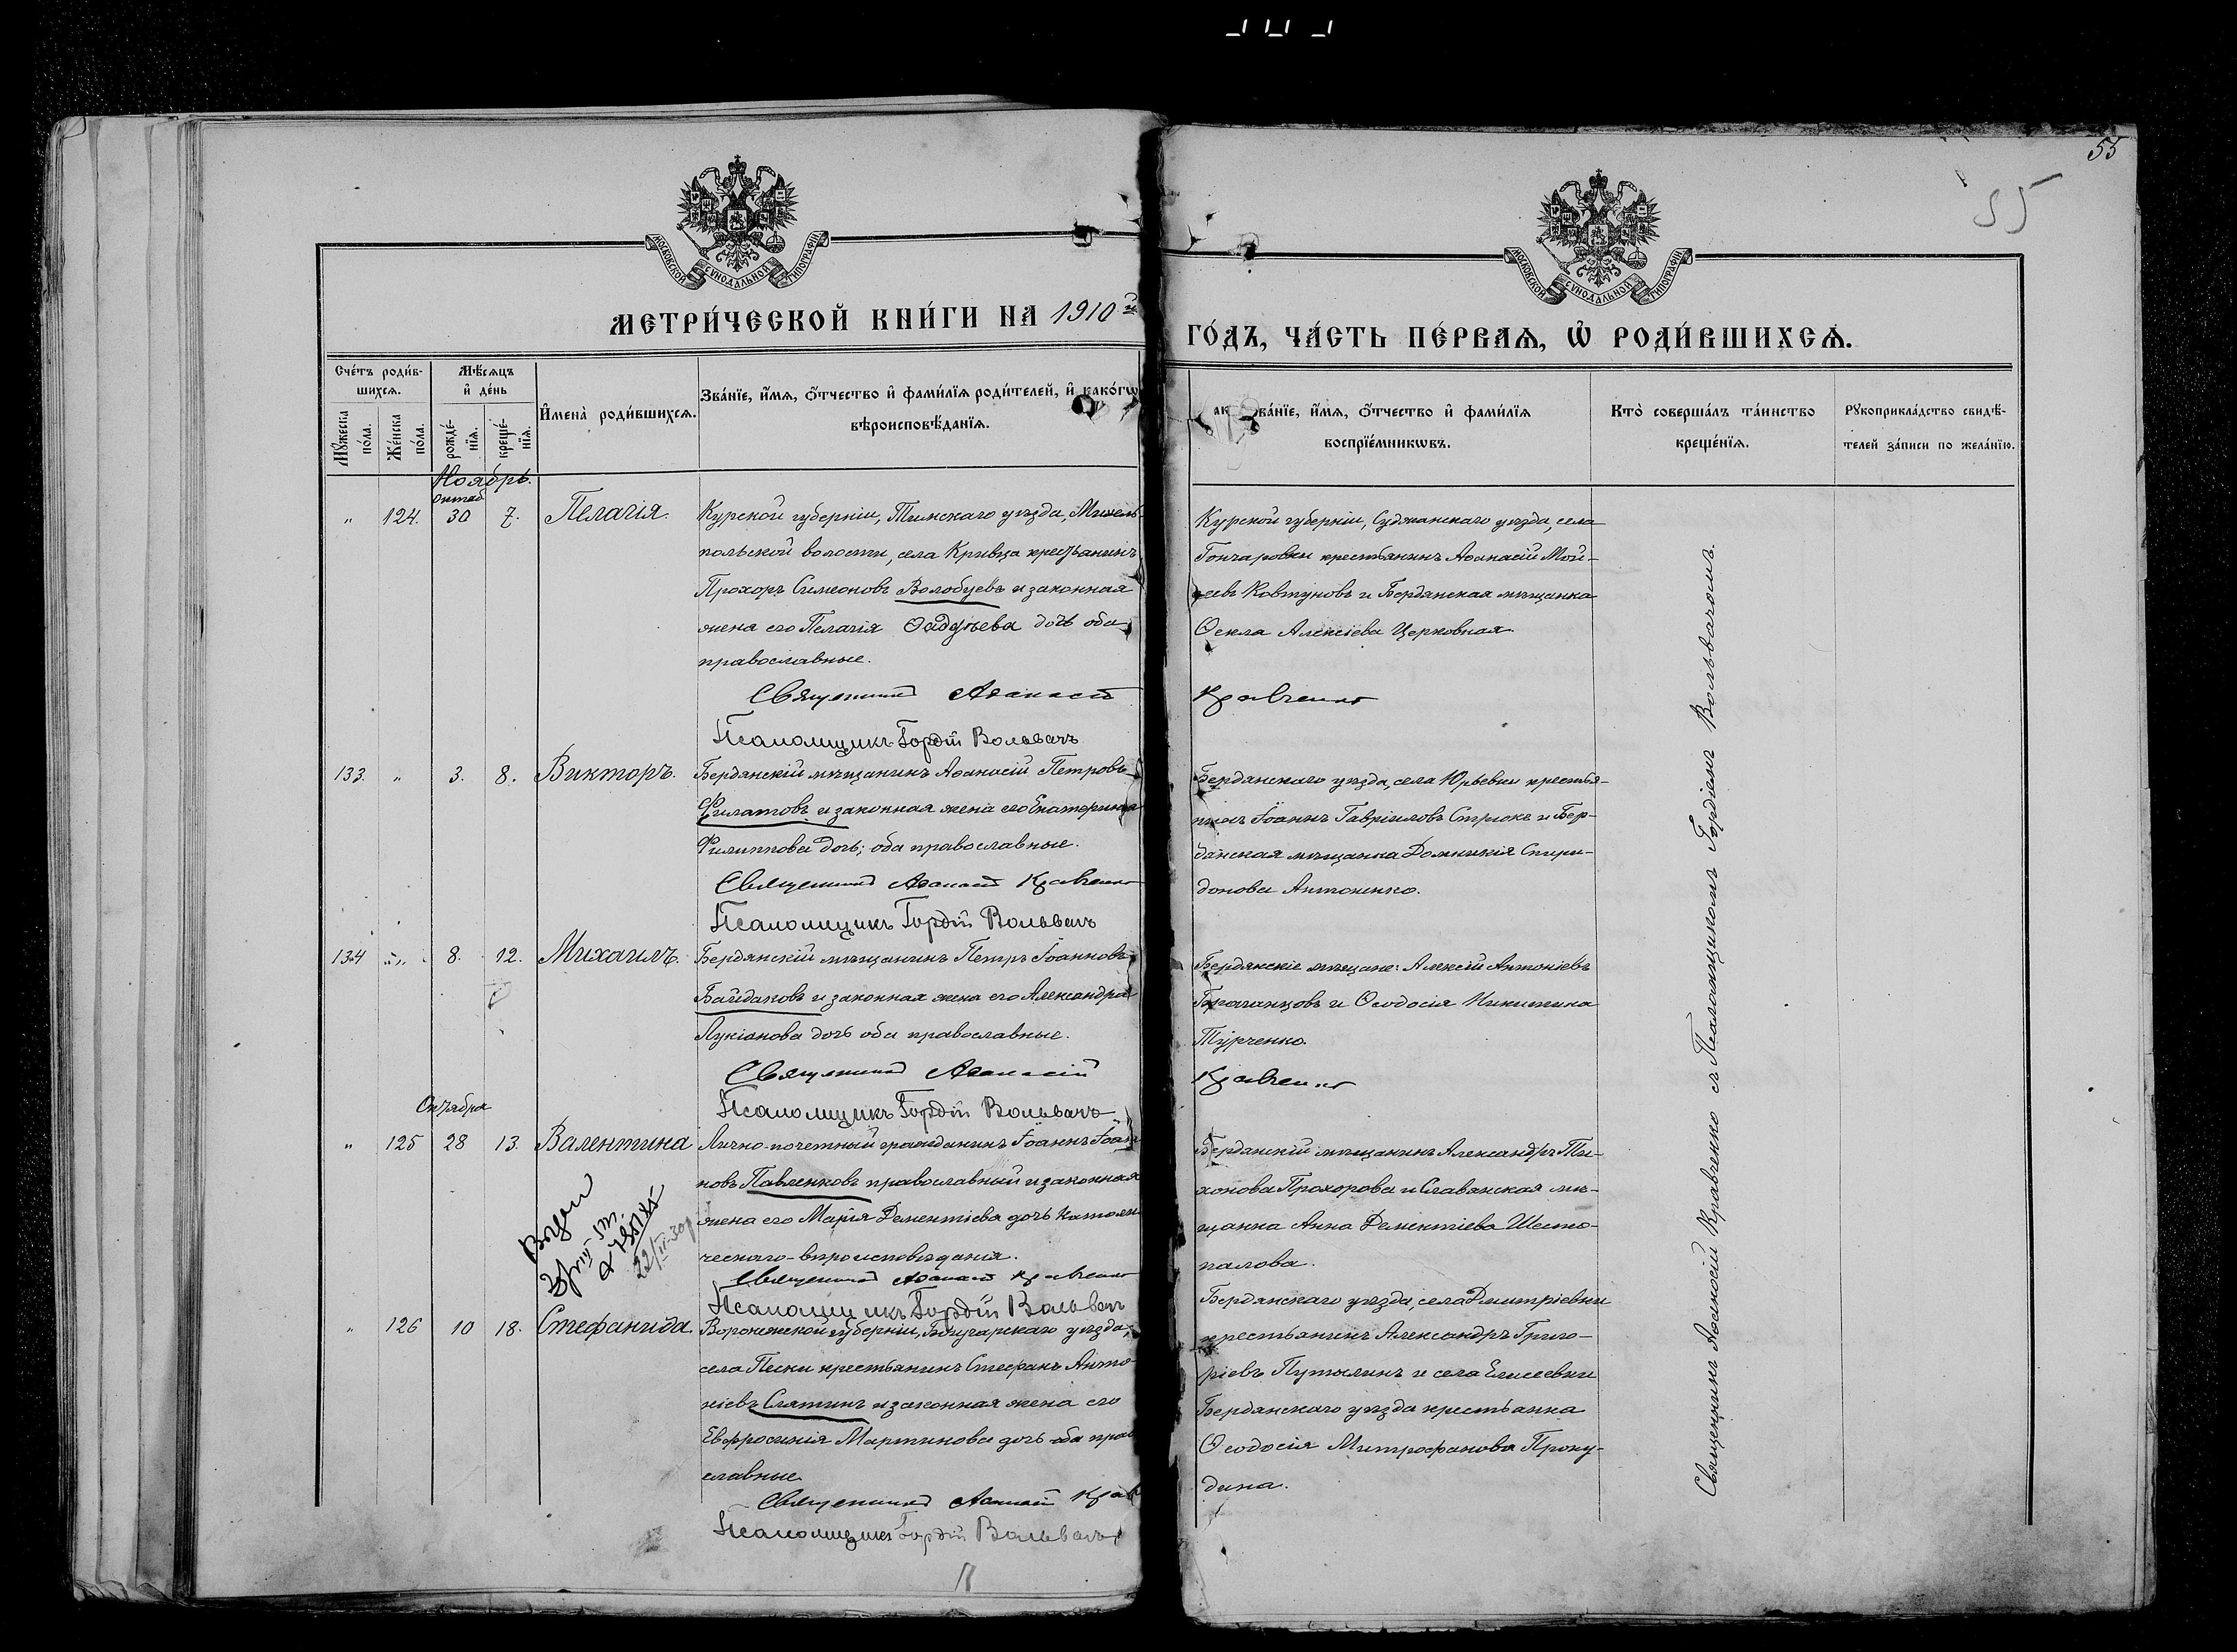 55
55
МОСКОВСКОЙ СУНОДАЛЬНОЙ ТИПОГРАФІИ
МОСКОВСКОЙ СУНОДАЛЬНОЙ ТИПОГРАФІИ
МЕТРИ́ЧЕСКОЙ КНИ́ГИ НА 1910й
ГО́ДЪ, ЧА́СТЬ ПЕ́РВАѦ, Ѡ҆ РОДИ́ВШИХСѦ.
Сче́тъ роди́в-
шихсѧ.
Мꙋ́жеска по́ла.
Же́нска по́ла.
Мѣ́сѧцъ
и҆ де́нь
рожде́-нїѧ.
креще́-нїѧ.
И҆мена̀ роди́вшихсѧ.
Зва́нїе, и҆́мѧ, ѻ҆́тчество и҆ фами́лїѧ роди́телей, и҆ како́гѡ
вѣроисповѣ́данїѧ.
Зва́нїе, и҆́мѧ, ѻ҆́тчество и҆ фами́лїѧ
воспрїе́мникѡвъ.
Кто̀ соверша́лъ та́инство
креще́нїѧ.
Рꙋкоприкла́дство свидѣ́-
телей за́писи по жела́нїю.
Ноябрь.
Октяб
" 124. 30 7. Пелагія.
Курской губерніи, Тимскаго уѣзда,
польской волости, села Кривца крестьянинъ
Прохоръ Симеоновъ Волобуевъ и законная
жена его Пелагія Ѳаддѣева дочь оба
православные.
Священникъ Аѳанасій
Псаломщикъ Гордій Вольвачъ
Курской губерніи, Суджанскаго уѣзда, села
Гончаровки крестьянинъ Аѳанасій Мой-
сеевъ Ковтуновъ и Бердянская мѣщанка
Ѳекла Алексіева Церковная.
Кравченко
133. " 3. 8. Викторъ.
Бердянскій мѣщанинъ Аѳанасій Петровъ
Филатовъ и законная жена его Екатерина
Филиппова дочь; оба православные.
Священникъ Аѳанасій Кравченко
Псаломщикъ Гордій Вольвачъ
Бердянскаго уѣзда, села Юрьевки крестья-
нинъ Іоаннъ Гавріиловъ Стрюкъ и Бер-
дянская мѣщанка Домникія Спири-
донова Антоненко.
134 " 8. 12. Михаилъ.
Бердянскій мѣщанинъ Петръ Іоанновъ
Байдаковъ и законная жена его Александра
Лукіанова дочь оба православные.
Священникъ Аѳанасій
Псаломщикъ Гордій Вольвачъ
Бердянскіе мѣщане: Алексій Антоніевъ
и Ѳеодосія Никитина
Турченко.
Кравченко
Октября
" 125 28 13. Валентина
Лично-почетный гражданинъ Іоаннъ Іоан
новъ Павленковъ православный и законная
жена его Марія Дементіева дочь католи-
ческаго-вѣроисповѣданія.
Священникъ Аѳанасій Кравченко
Псаломщикъ Гордій Вольвачъ
Бердянскій мѣщанинъ Александръ Ти-
хонова Прохорова и Славянская мѣ-
щанка Анна Дементіева Шесто-
палова.
" 126 10 18. Стефанида.
Воронежской губерніи, Богучарскаго уѣзда,
села Пески крестьянинъ Стефанъ Анто-
ніевъ Слятинъ и законная жена его
Евфросинія Мартинова дочь оба право
славные.
Священникъ Аѳанасій Крав
Псаломщикъ Гордій Вольвачъ
Бердянскаго уѣзда, села Дмитріевки
крестьянинъ Александръ Григо-
ріевъ Путилинъ и села Елисеевки
Бердянскаго уѣзда крестьянка
Ѳеодосія Митрофанова Проку-
дина.
Священникъ Аѳанасій Кравченко съ Псаломщикомъ Гордіемъ Вольвачомъ.